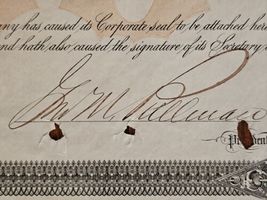 ny has caused its Corporate seal to be attached here
nd hath also caused the signature of its Secretary
Geo M Pullman
President